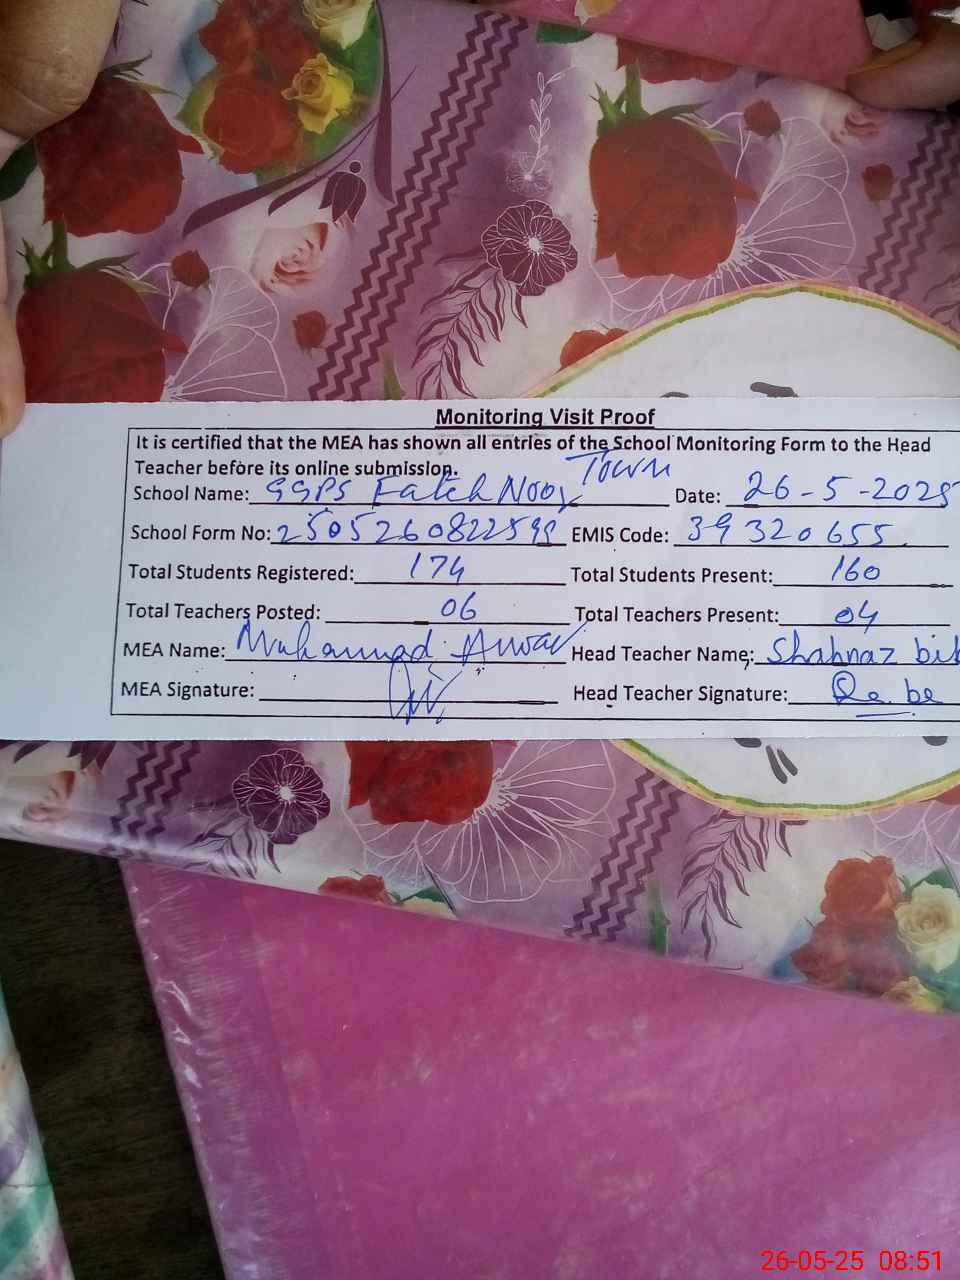 Monitoring Visit Proof
It is certified that the MEA has shown all entries of the School Monitoring Form to the Head
Teacher before its online submission.
School Name: GGPS Fateh Noor Town Date: 26-5-2025
School Form No: 250526082259 EMIS Code: 39320655
Total Students Registered: 174 Total Students Present: 160
Total Teachers Posted: 06 Total Teachers Present: 04
MEA Name: Muhammad Anwar Head Teacher Name: Shahnaz bib
MEA Signature: Head Teacher Signature:
26-05-25 08:51